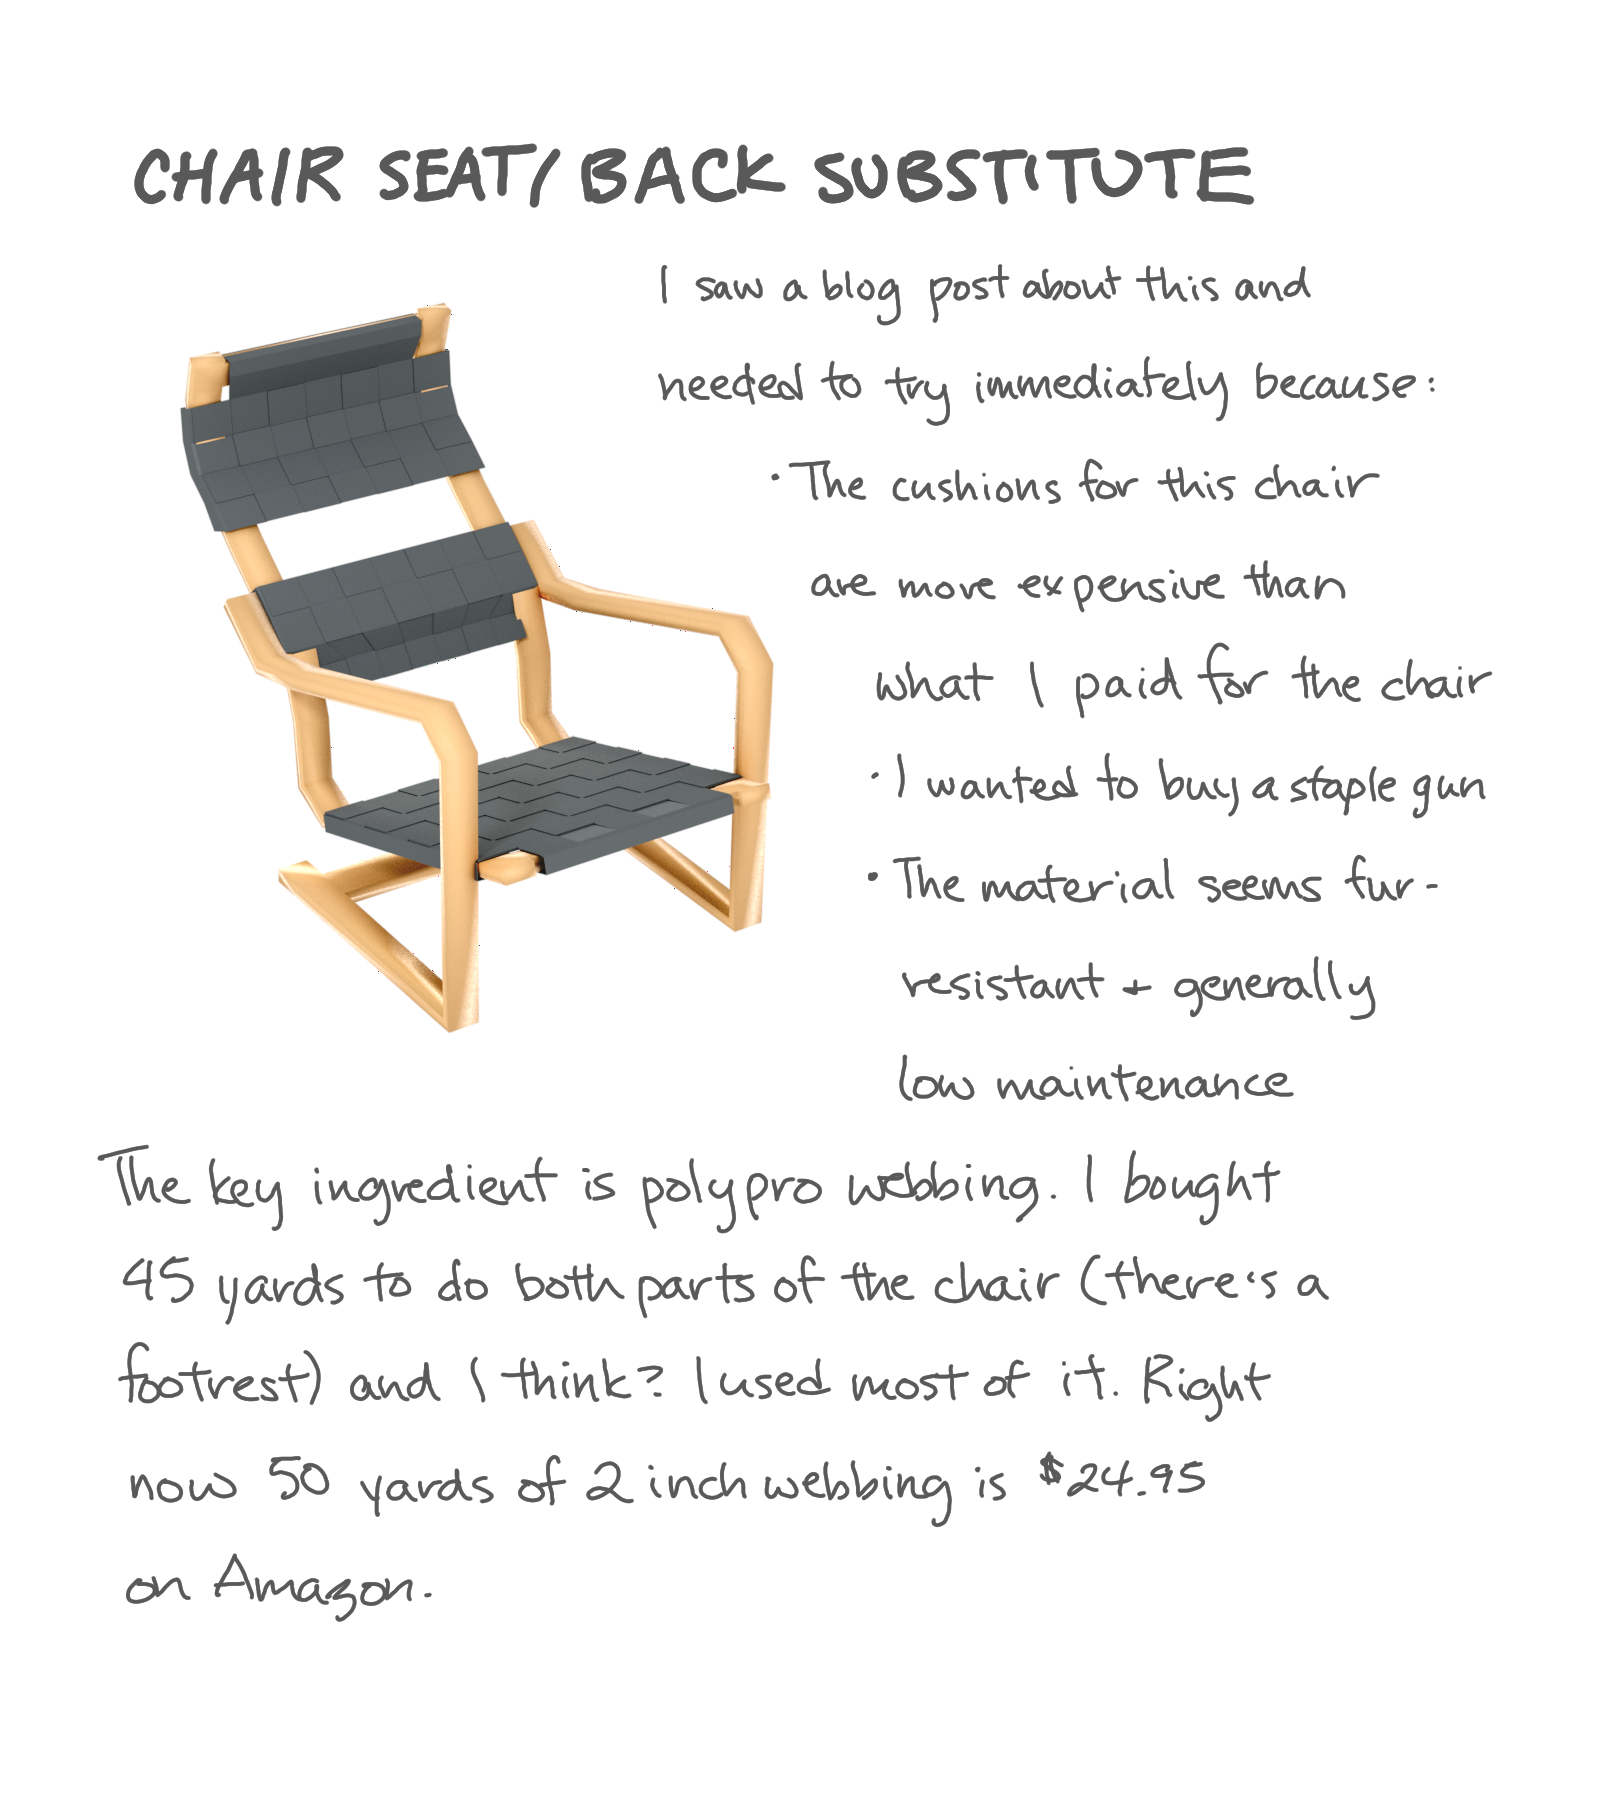 CHAIR SEAT/BACK SUBSTITUTE
I saw a blog post about this and
needed to try immediately because:
• The cushions for this chair
are more expensive than
what I paid for the chair
• I wanted to buy a staple gun
• The material seems fur-
resistant + generally
low maintenance
The key ingredient is polypro webbing. I bought
45 yards to do both parts of the chair (there's a
footrest) and I think? I used most of it. Right
now 50 yards of 2 inch webbing is $24.95
on Amazon.